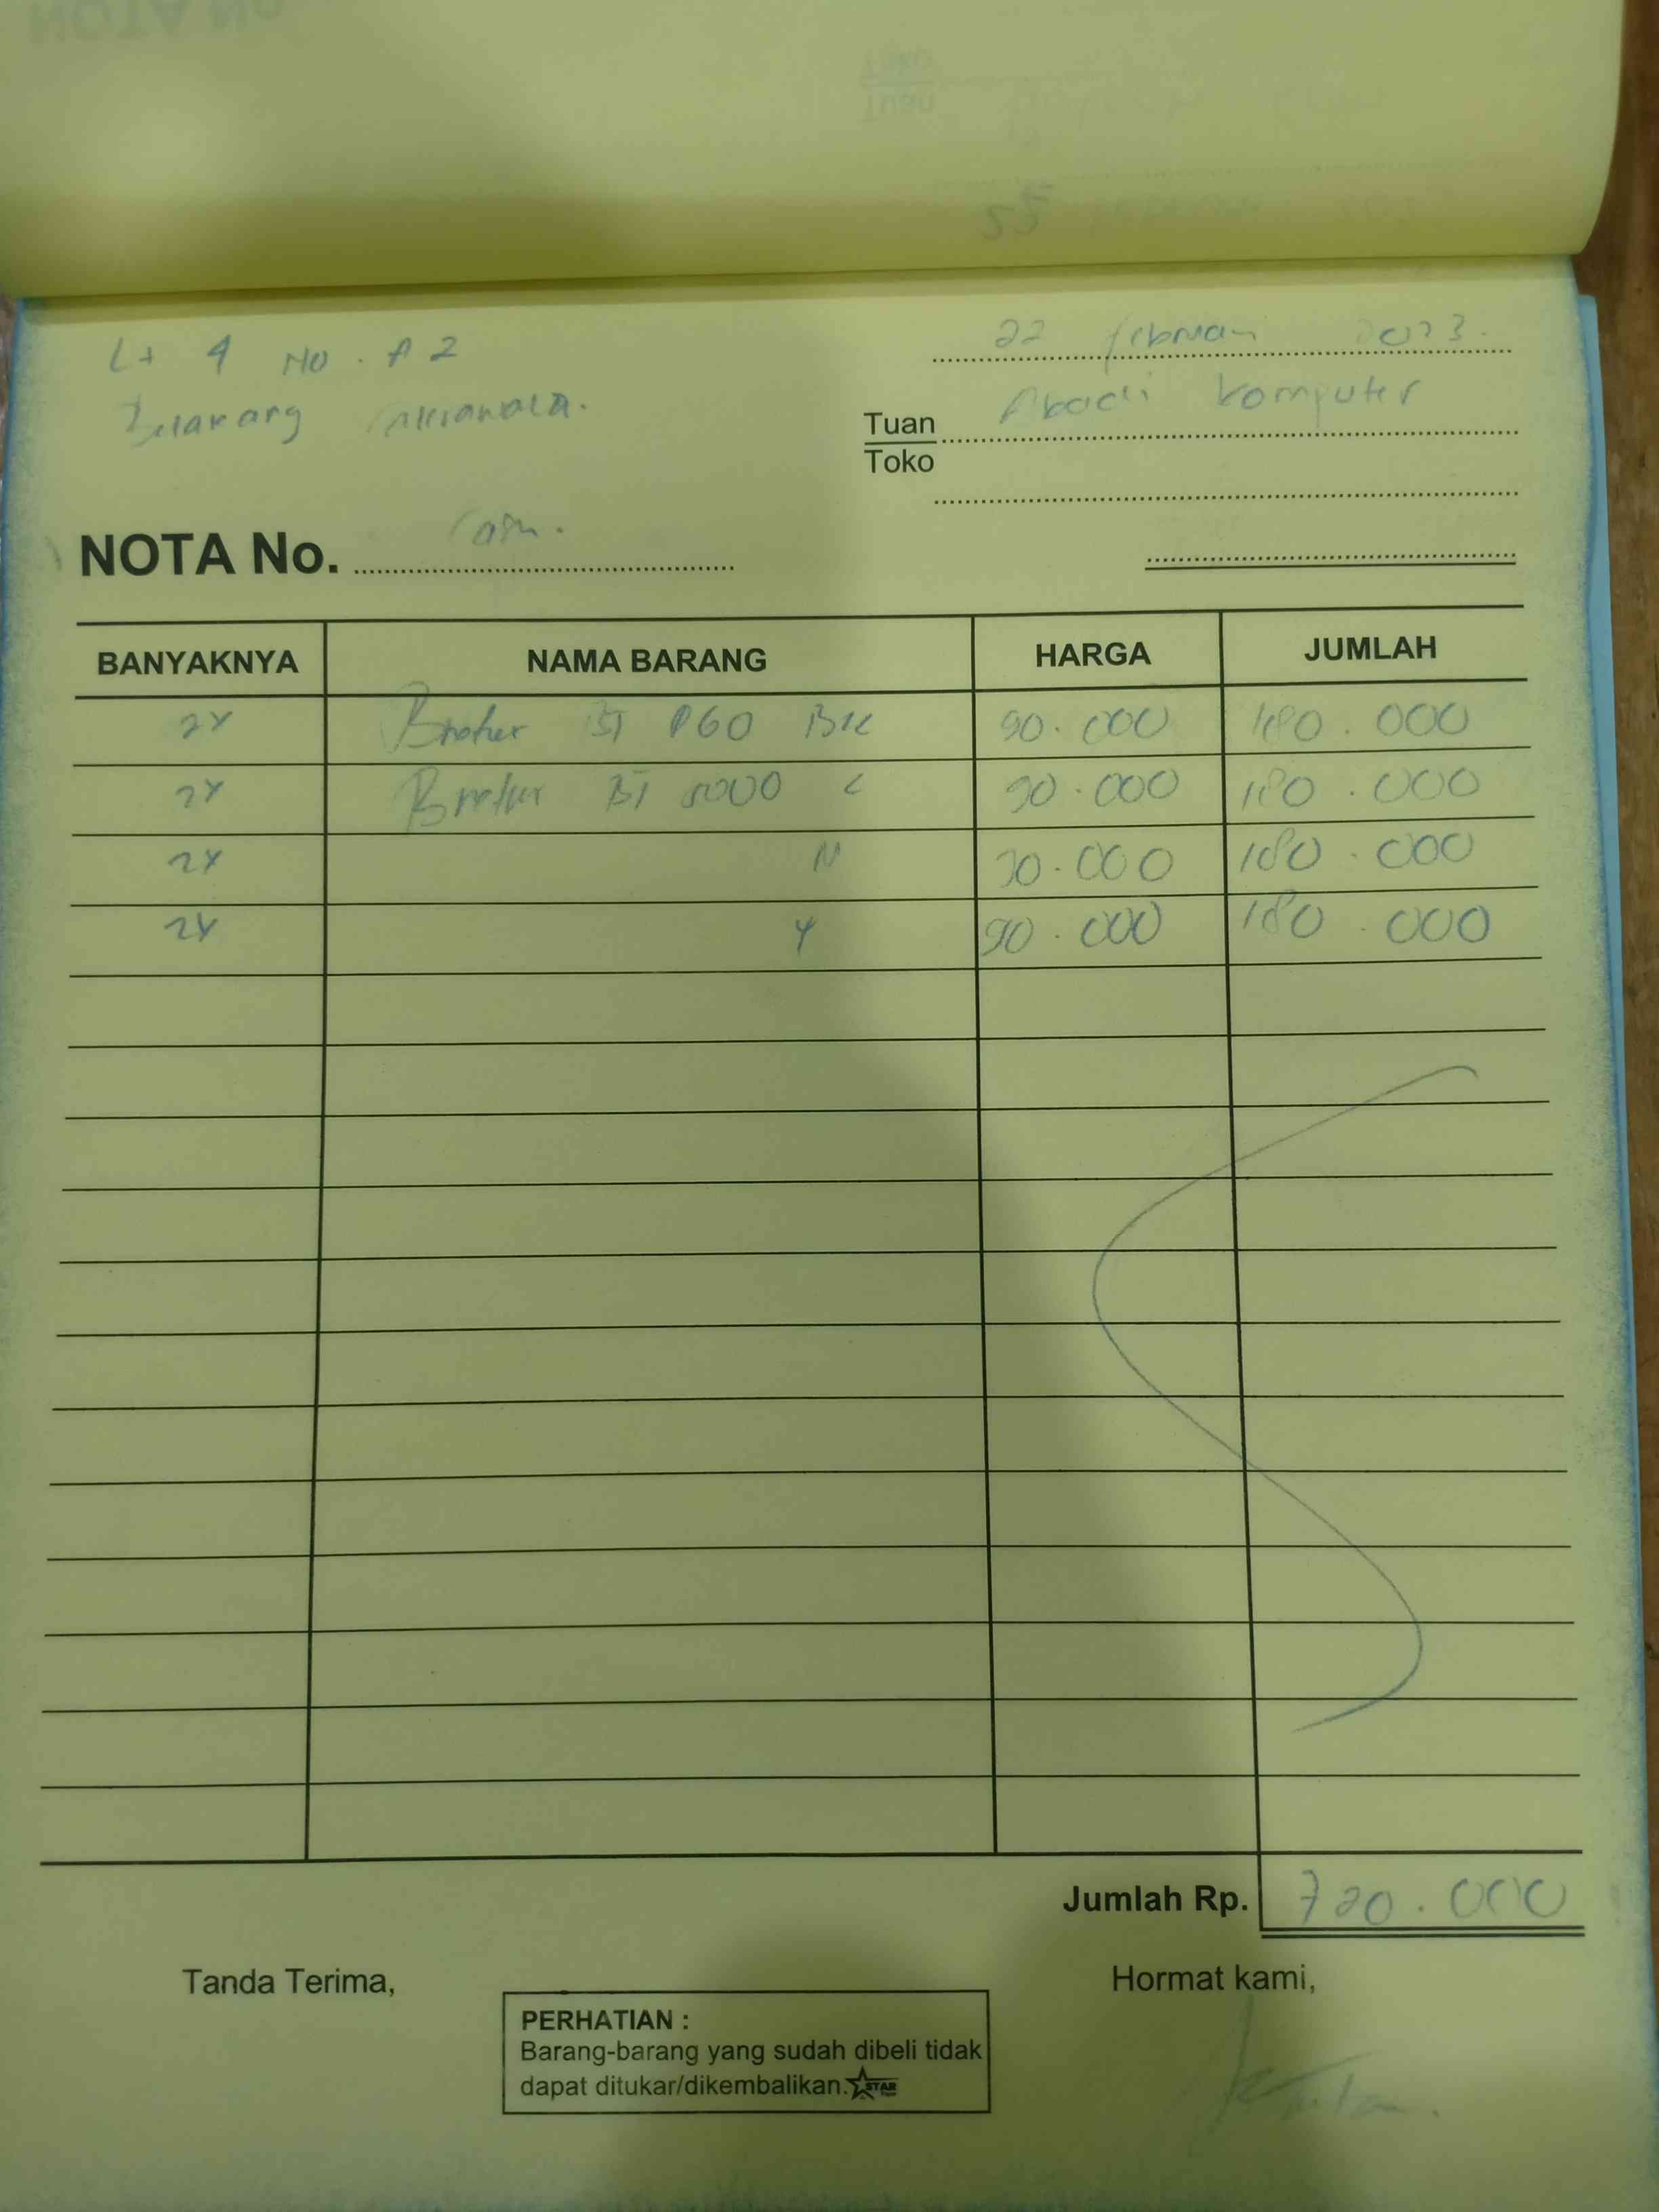 Lt 4 No. A2
Belakang
22 februari 2023.
Tuan Abadi komputer
Toko
NOTA No. Cash.
BANYAKNYA NAMA BARANG HARGA JUMLAH
2x Brother BT D60 BK 90.000 180.000
2x Brother BT 5000 C 90.000 180.000
2x M 90.000 180.000
2x Y 90.000 180.000
Jumlah Rp. 720.000
Tanda Terima,
Hormat kami,
PERHATIAN :
Barang-barang yang sudah dibeli tidak
dapat ditukar/dikembalikan. STAR